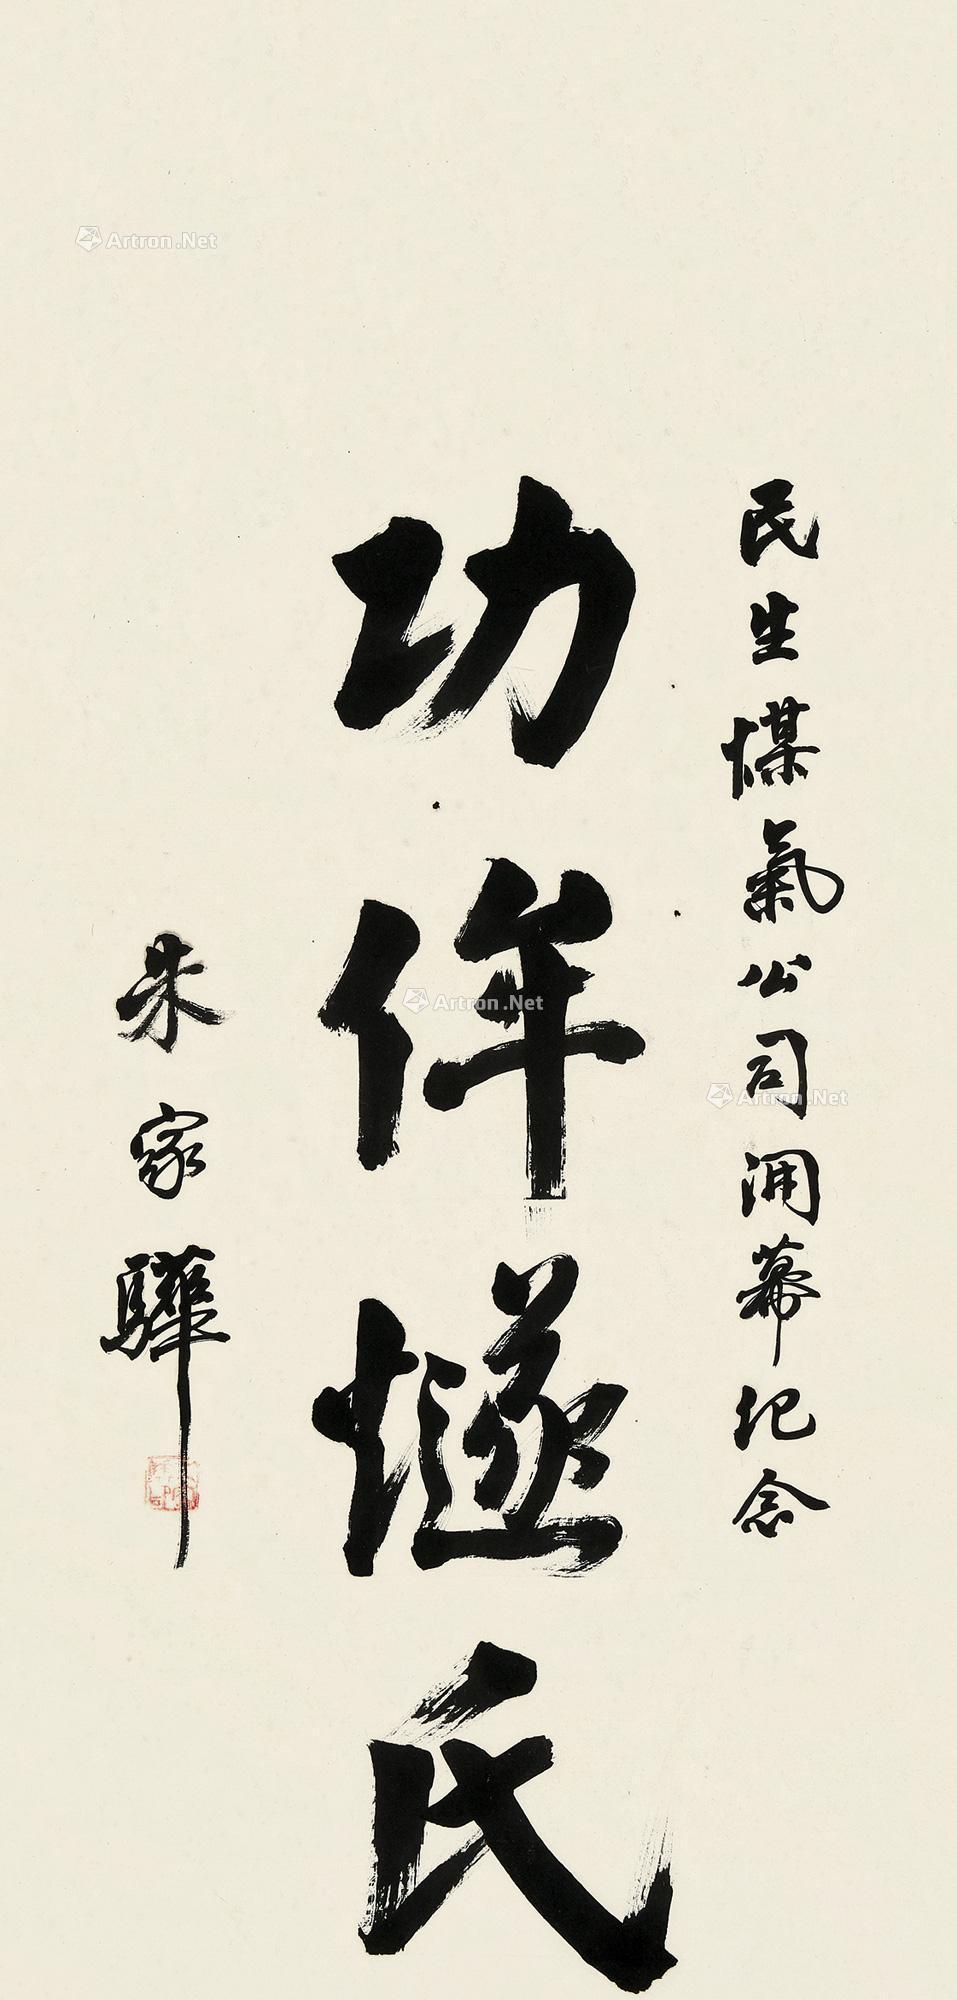 民生煤氣公司開幕纪念
功侔燧氏
朱家驊
Artron.Net
Artron.Net
Artron.Net